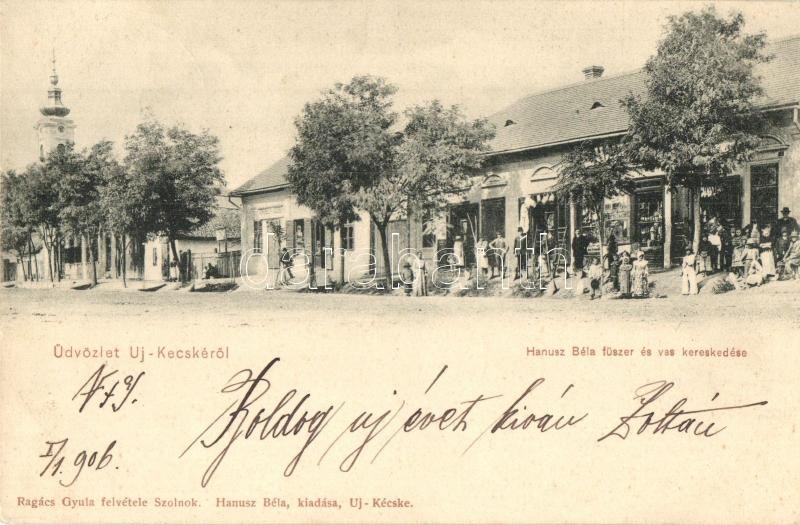 darabanth.com
Üdvözlet Uj-Kecskéről
Hanusz Béla füszer és vas kereskedése
I/1. 906.
Boldog uj évet kiván Zoltán
Ragács Gyula felvétele Szolnok. Hanusz Béla, kiadása, Uj-Kécske.